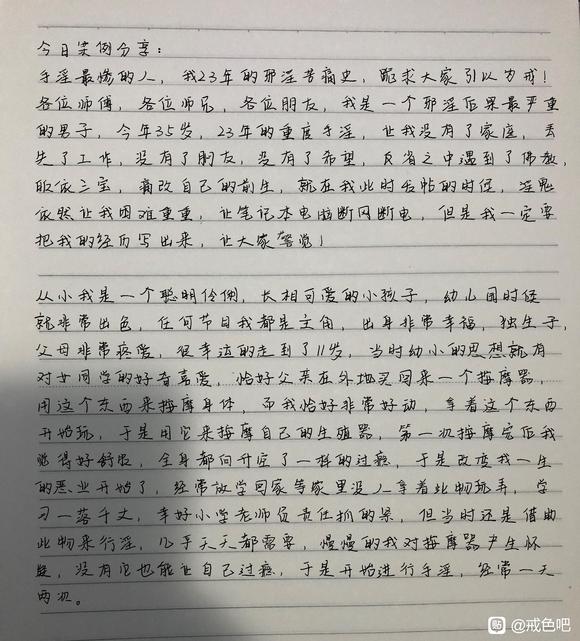 今日案例分享：
手淫最惨的人，我23年的邪淫苦痛史，跪求大家引以为戒！
各位师傅，各位师兄，各位朋友，我是一个邪淫后果最严重
的男子，今年35岁，23年的重度手淫，让我没有了家庭，丢
失了工作，没有了朋友，没有了希望，反省之中遇到了佛教，
皈依三宝，痛改自己的前生，就在我此时发帖的时候，淫鬼
依然让我困难重重，让笔记本电脑断网断电，但是我一定要
把我的经历写出来，让大家警觉！
从小我是一个聪明伶俐，长相可爱的小孩子，幼儿园时候
就非常出色，任何节目我都是主角，出身非常幸福，独生子，
父母非常疼爱，很幸运的走到了11岁，当时幼小的思想就有
对女同学的好奇喜爱，恰好父亲在外地买回来一个按摩器，
用这个东西来按摩身体，而我恰好非常好动，拿着这个东西
开始玩，于是用它来按摩自己的生殖器，第一次按摩完后我
觉得好舒服，全身都向升空了一样的过瘾，于是改变我一生
的恶业开始了，经常放学回家等家里没人拿着此物玩弄，学
习一落千丈，幸好小学老师负责任抓的紧，但当时还是借助
此物来行淫，几乎天天都需要，慢慢的我对按摩器产生怀
疑，没有它也能让自己过瘾，于是开始进行手淫，经常一天
两次。
贴 @戒色吧